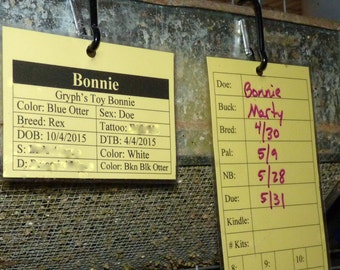 Bonnie
Gryph's Toy Bonnie
Color: Blue Otter Sex: Doe
Breed: Rex Tattoo:
DOB: 10/4/2015 DTB: 4/4/2015
S: Color: White
D: Color: Bkn Blk Otter
Doe: Bonnie
Buck: Marty
Bred: 4/30
Pal: 5/9
NB: 5/28
Due: 5/31
Kindle:
# Kits:
8: 9: 10: